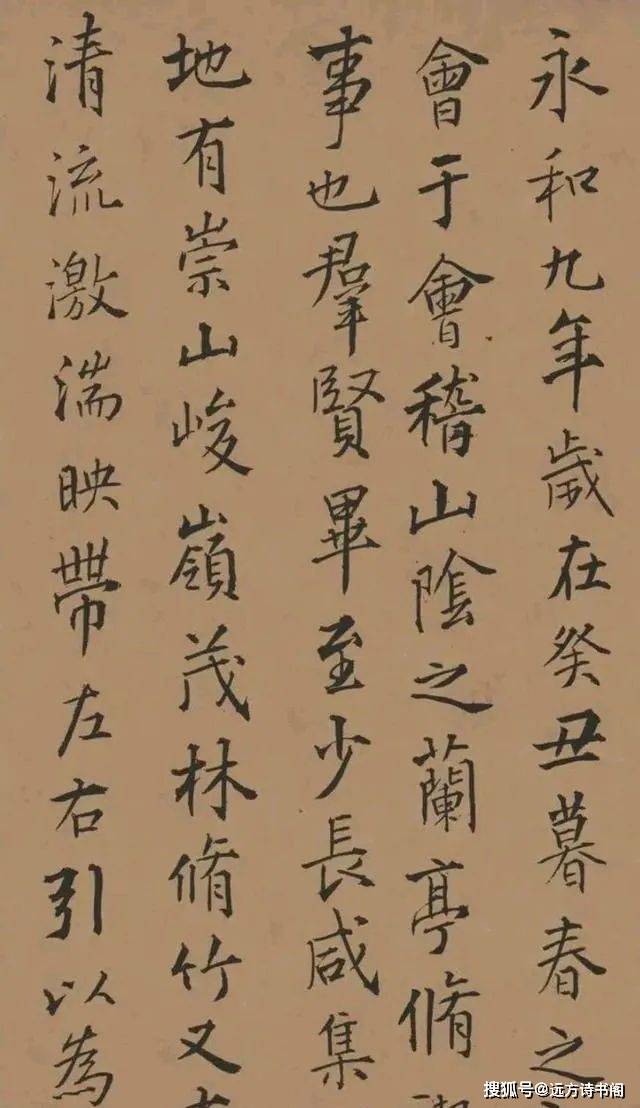 永和九年歲在癸丑暮春之
會于會稽山陰之蘭亭脩
事也羣賢畢至少長咸集
地有崇山峻嶺茂林脩竹又
清流激湍映帶左右引以為
搜狐号@远方诗书阁